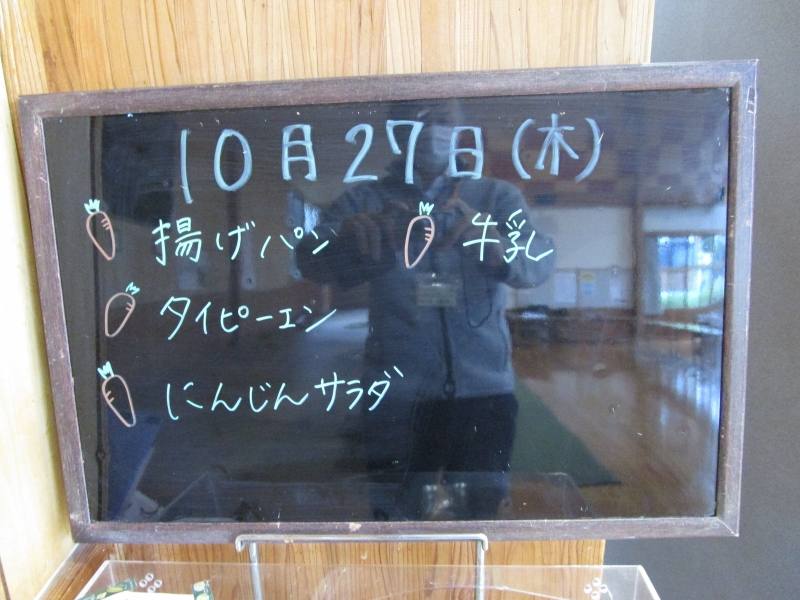 10月27日(木)
揚げパン 牛乳
タイピーエン
にんじんサラダ